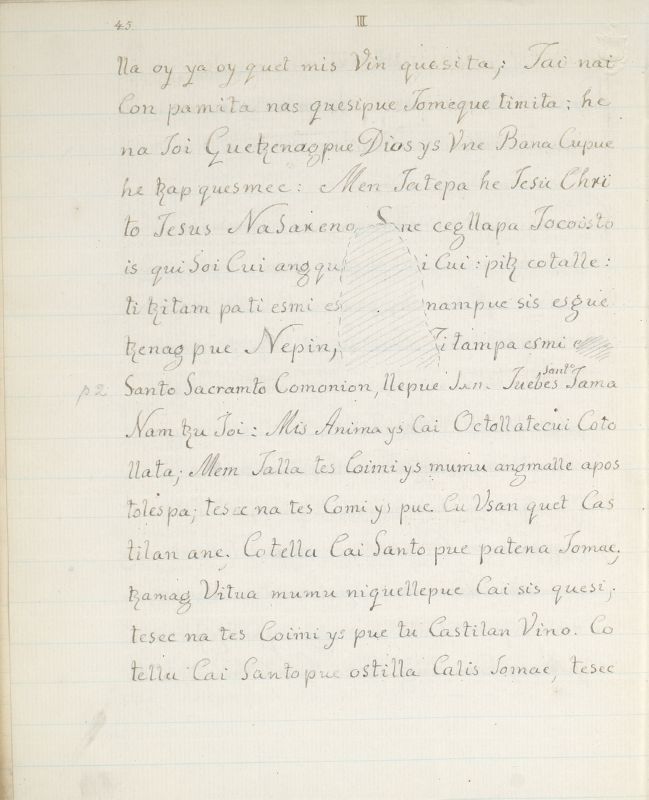 45 III
lla oy ya oy quet mis Vin quesita; Jai nai
Con pamita nas quesipue Jomeque timita: he
na Joi Quetzenagpue Dios ys Vne Bana Cupue
he tzap quesmec: Men Jatepa he Jesu Chri
to Jesus Nasareno ne cegllapa Jocoisto
is qui Soi Cui angqu i Cui: pitz cotalle:
ti tzitam pa ti esmi es nampue sis esgue
tzenag pue Nepin, Ti tampa esmi
p 2 Santo Sacramto Comonion, llepue Juebes Santo Jama
Nam tzu Joi: Mis Anima ys Cai Octollatecui Coto
llata; Mem Jalla tes Coimi ys mumu angmalle apos
toles pa; tesec na tes Comi ys pue. Cu Vsan quet Cas
tilan ane. Cotella Cai Santo pue patena Jomae,
tzamag Vitua mumu niquellepue Cai sis quesi,
tesec na tes Coimi ys pue tu Castilan Vino. Co
tellu Cai Santopue ostilla Calis Jomae, tesec